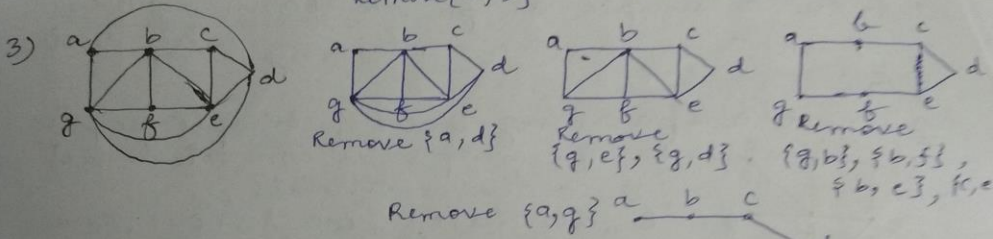 3)
a b c d
g f e
a b c d
g f e
Remove {a, d}
a b c d
g f e
Remove
{g, e}, {g, d}
a b c d
g f e
Remove
{g, b}, {b, f},
{b, e}, {c, e
Remove {a, g}
a b c